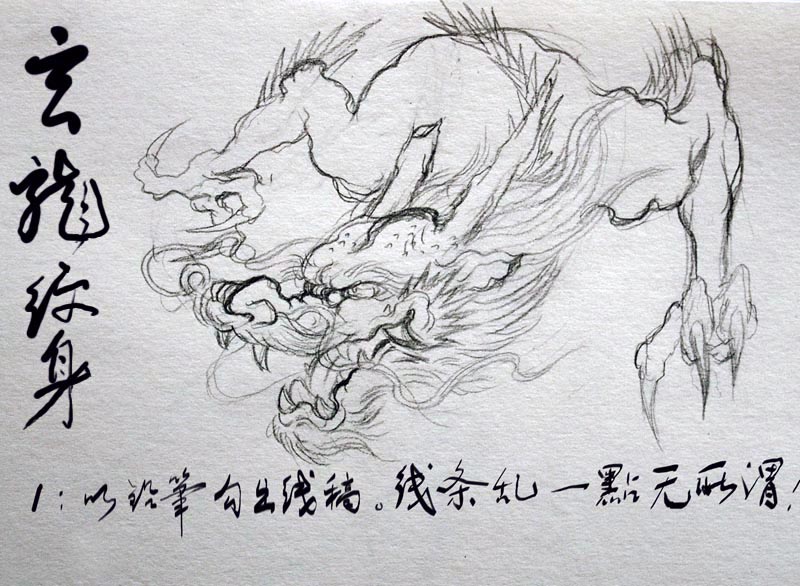 玄龍纹身
1：以铅筆勾出线稿。线条乱一點无所渭！